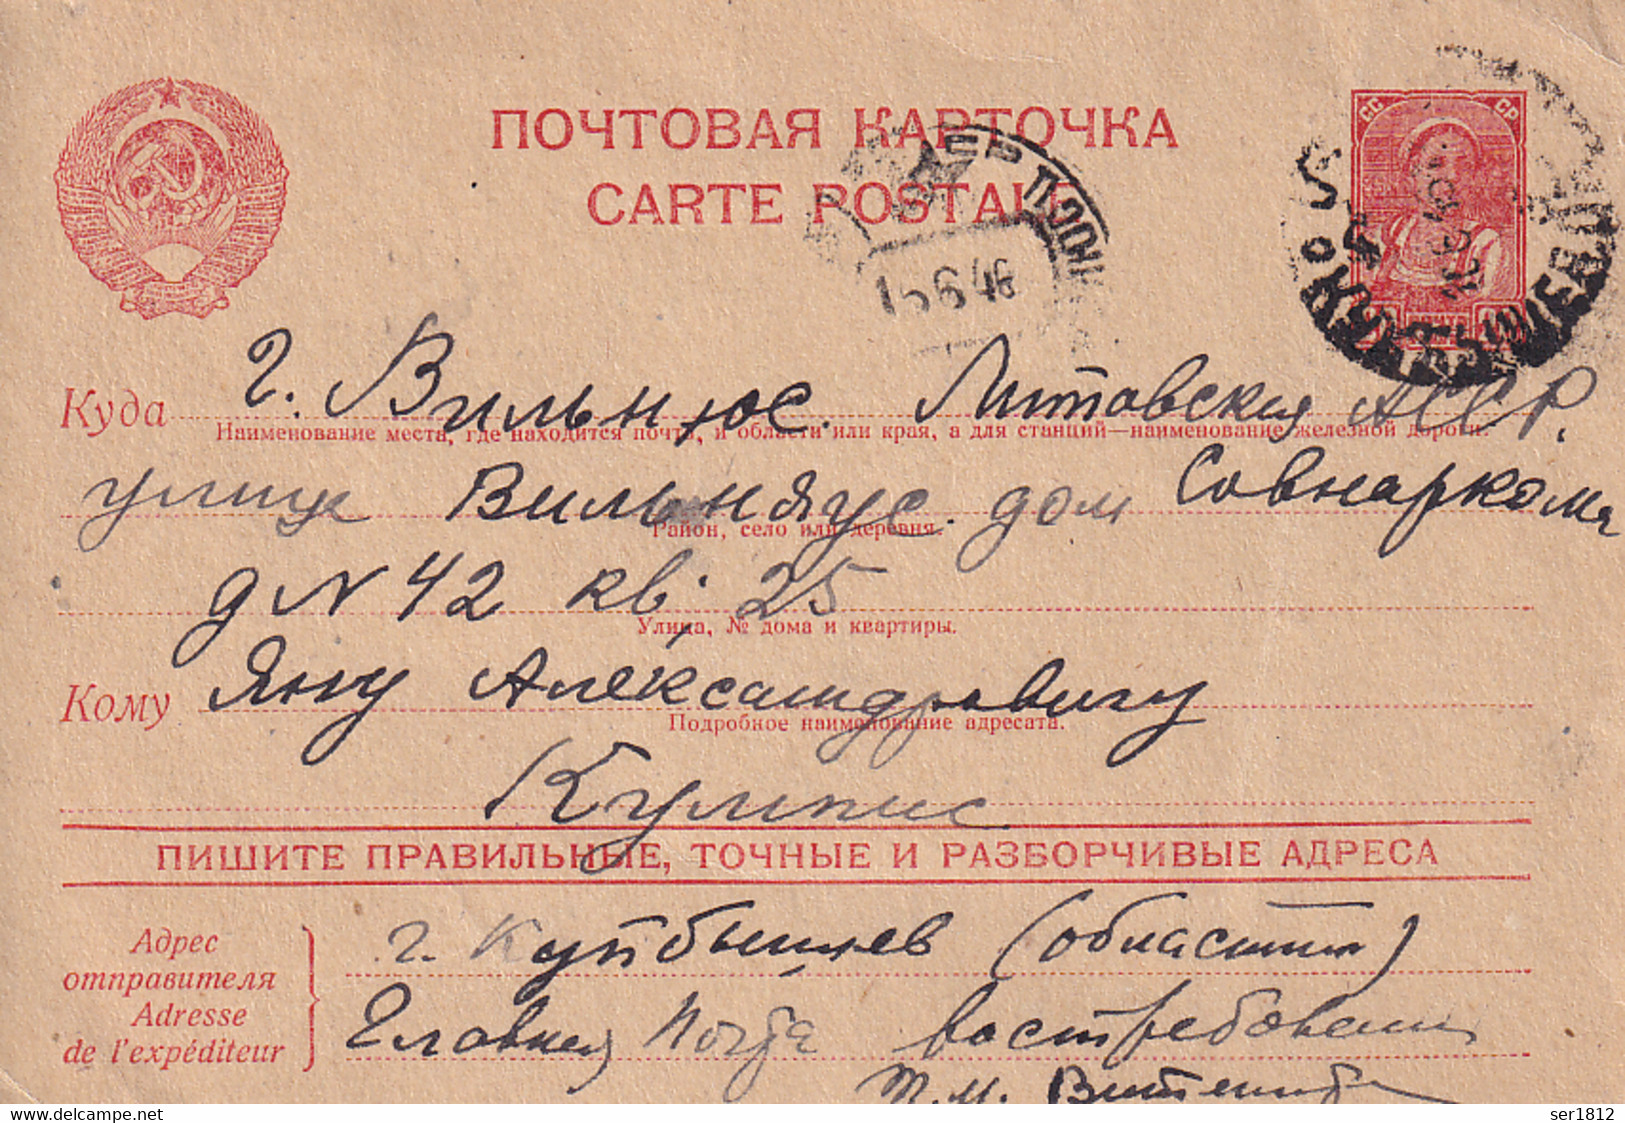 ПОЧТОВАЯ КАРТОЧКА
CARTE POSTALE
СС СР
ПОЧТА
КУЙБЫШЕВ
15 6 46
Куда г. Вильнюс. Литовская АССР.
Наименование места, где находится почта, и области или края, а для станций—наименование железной дороги.
улица Вильняус. дом Совнаркома
Район, село или деревня.
д N 42 кв. 25
Улица, № дома и квартиры.
Кому Яну Александровичу
Подробное наименование адресата.
Кулпис
ПИШИТЕ ПРАВИЛЬНЫЕ, ТОЧНЫЕ И РАЗБОРЧИВЫЕ АДРЕСА
Адрес
отправителя
Adresse
de l'expéditeur
г. Куйбышев (областной)
Главная Почта востребован
delcampe.net
ser1812